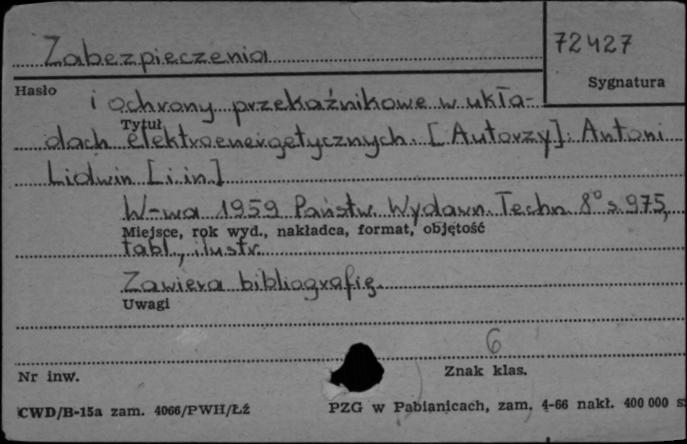 Zabezpieczenia
72427
Sygnatura
Hasło
i ochrony przekaźnikowe w ukła-
Tytuł
dach elektroenergetycznych. [Autorzy]: Antoni
Lidwin [i.in.]
W-wa 1959 Państw. Wydawn. Techn. 8° s. 975,
Miejsce, rok wyd., nakładca, format, objętość
tabl., ilustr.
Zawiera bibliografię.
Uwagi
6
Nr inw.
Znak klas.
CWD/B-15a zam. 4066/PWH/Łź
PZG w Pabianicach, zam. 4-66 nakł. 400 000 s